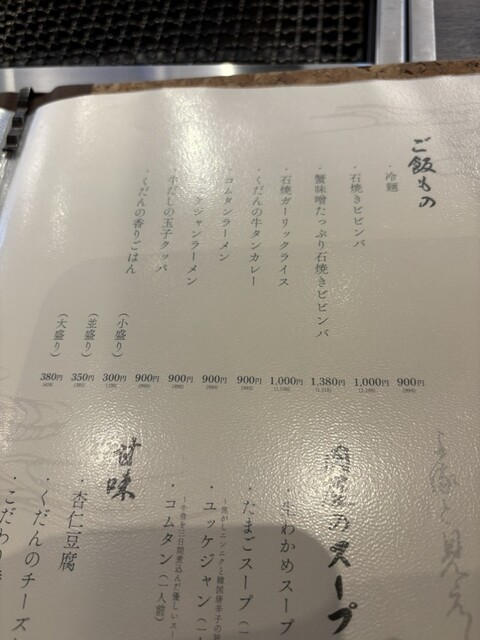 ご飯もの
・冷麺
900円
・石焼きビビンバ
1,000円
・蟹味噌たっぷり石焼きビビンバ
1,380円
・石焼ガーリックライス
1,000円
・くだんの牛タンカレー
900円
コムタンラーメン
900円
ジャンラーメン
900円
牛だしの玉子クッパ
900円
・くだんの香りごはん
(小盛り)
300円
(並盛り)
350円
(大盛り)
380円
のスープ
わかめスープ
・たまごスープ(一
・ユッケジャン(一
・コムタン(一人前)
甘味
・杏仁豆腐
・くだんのチーズ
・こだわり